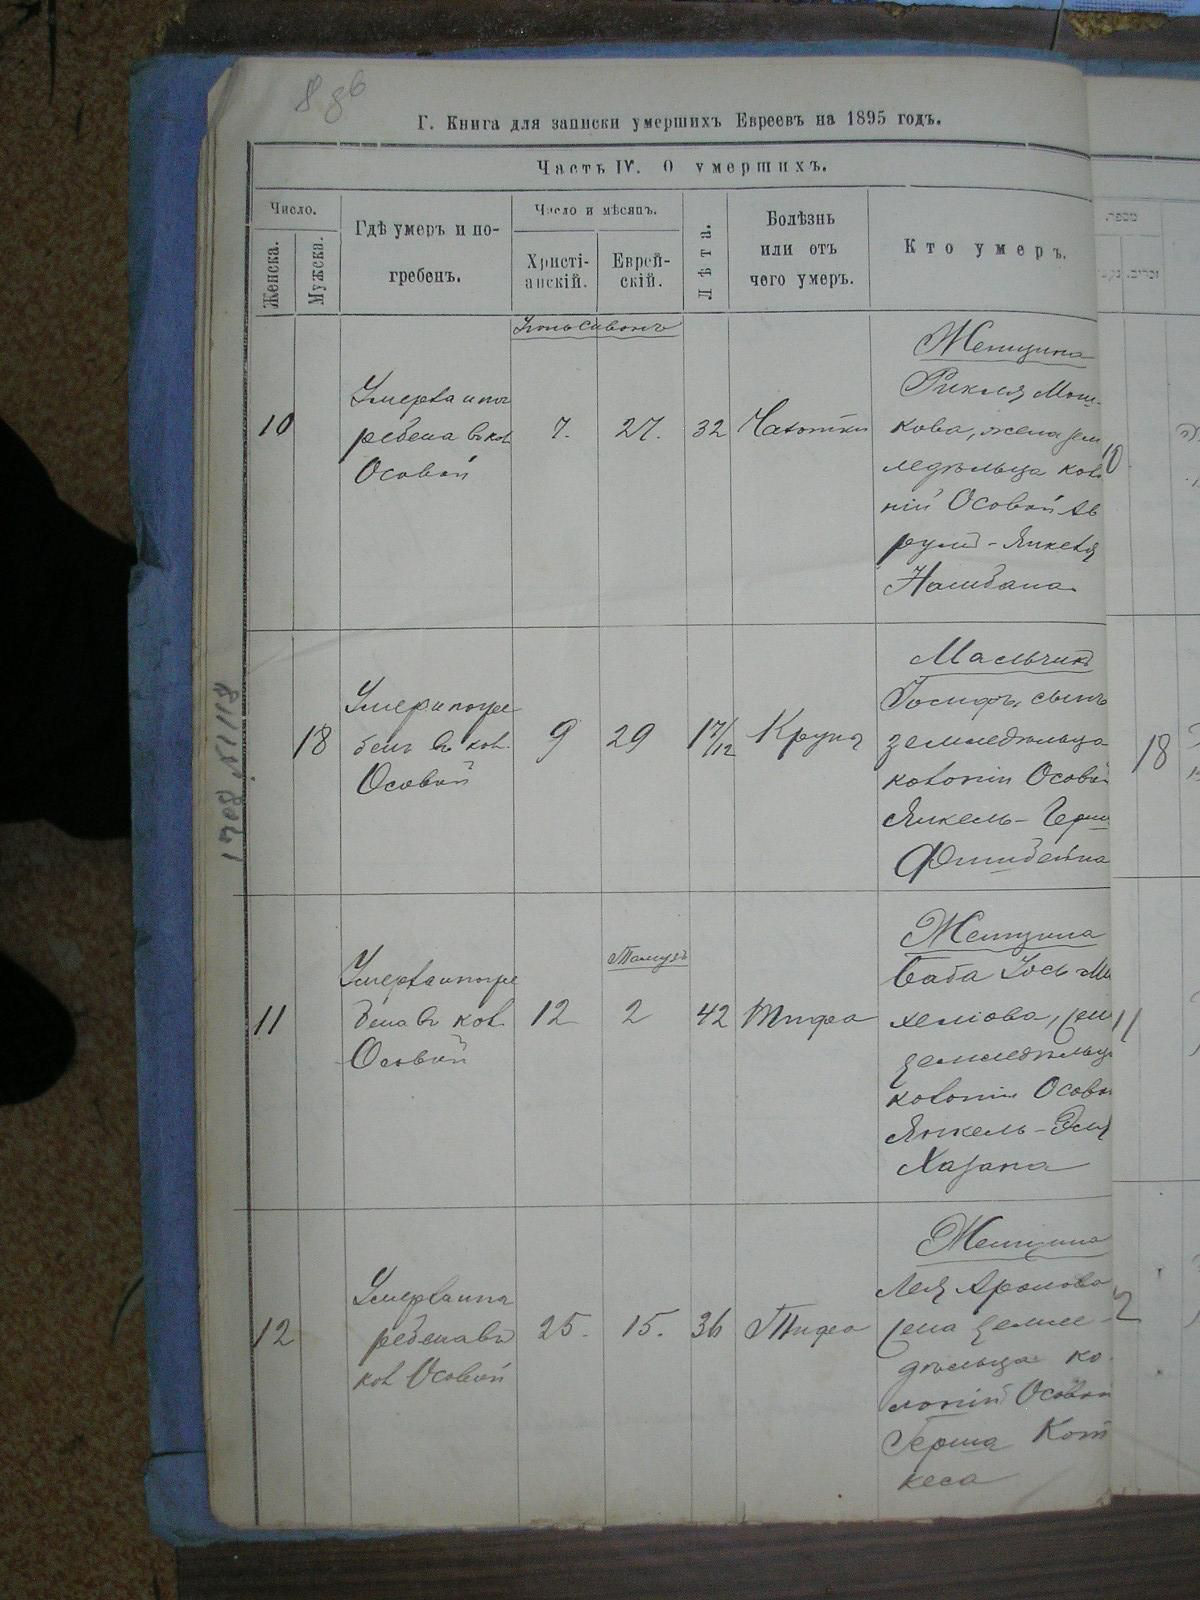 Г. Книга для записки умершихъ Евреевъ на 1895 годъ.
Часть IV. О умершихъ.
Число.
Женска.
Мужска.
Гдѣ умеръ и по-
гребенъ.
Число и мѣсяцъ.
Христі-
анскій.
Еврей-
скій.
Лѣта.
Болѣзнь
или отъ
чего умеръ.
Кто умеръ.
Іюнь Сивонъ
10
Умерла и пог
ребена въ кол
Особой
7.
27.
32
Чахотки
Женщина
Рикля Мош-
кова, жена зем
ледѣльца коло
ніи Особой Ав
румъ-Янкеля
18
Умер и погре
бенъ въ кол.
Особой
9
29
1 7/12
Крупа
Мальчикъ
Іосифъ, сынъ
земледѣльца
колоніи Особой
Янкель-Герш
11
Умерла и погре
бена въ кол.
Особой
12
Тамузъ
2
42
Тифа
Женщина
земледѣльца
колоніи Особо
Янкель-
Хазана
12
Умерла и пог
ребена въ
кол Особой
25.
15.
36
Тифа
Женщина
Лея Аронова
жена земле-
дѣльца ко
лоніи Особой
Герша Кот
кеса
10
18
11
12
1708 N 1118